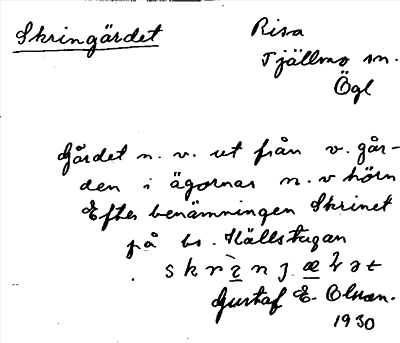 Skringärdet
Risa
Tjällmo sn.
Ögl
Gärdet n. v. ut från v. går-
den i ägornas n. v hörn
Efter benämningen Skrinet
på bs. Källstugan
Gustaf E. Olsson.
1930